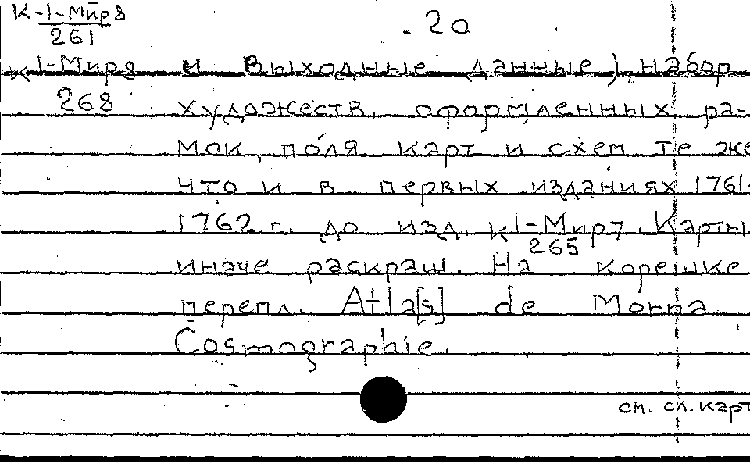 К-1-Мир8
261
- 20
К 1-Мир8 и выходные данные), набор
268 художеств. оформленных ра-
мок, поля карт и схем те же
что и в первых изданиях 1761-
1762 г. до изд. К 1-Мир7. Карты
265
иначе раскраш. На корешке
перепл. Atla[s] de Morna
Cosmographie.
см. сл. карт